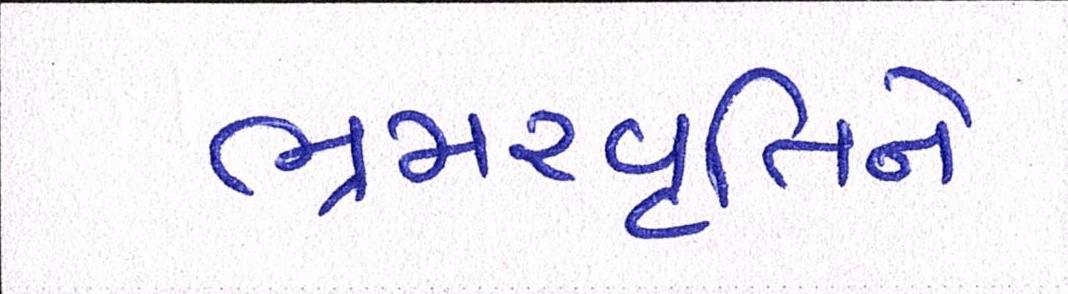 ભ્રમરવૃતિને